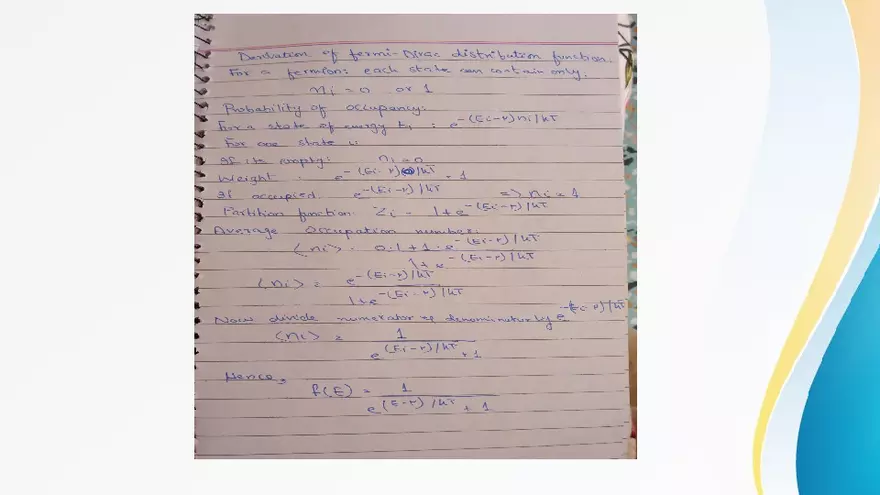 Derivation of fermi-Dirac distribution function.
For a fermion: each state can contain only.
ni = 0 or 1
Probability of occupancy:
For a state of energy Ei : e^-(Ei-μ)ni/kT
For one state i:
If its empty: ni = 0
Weight : e^-(Ei-μ)0/kT = 1
If occupied: e^-(Ei-μ)/kT => ni = 1
Partition function: Zi = 1+e^-(Ei-μ)/kT
Average occupation number:
<ni> = 0.1+1.e^-(Ei-μ)/kT
1+e^-(Ei-μ)/kT
<ni> = e^-(Ei-μ)/kT
1+e^-(Ei-μ)/kT
Now divide numerator & denominator by e^-(Ei-μ)/kT
<ni> = 1
e^(Ei-μ)/kT + 1
Hence,
f(E) = 1
e^(E-μ)/kT + 1